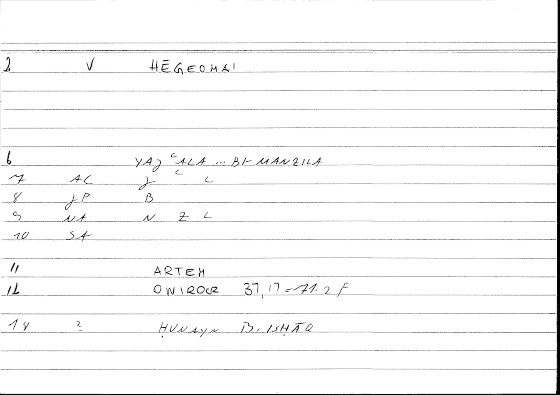 2 V HĒGEOMAI
6 YAJʿALA ... BI-MANZILA
7 AC J ʿ L
8 JP B
9 NA N Z L
10 SA
11 ARTEM
12 ONIROCR 37,17 = 71.2 F
14 2 ḤUNAYN B. ISḤĀQ